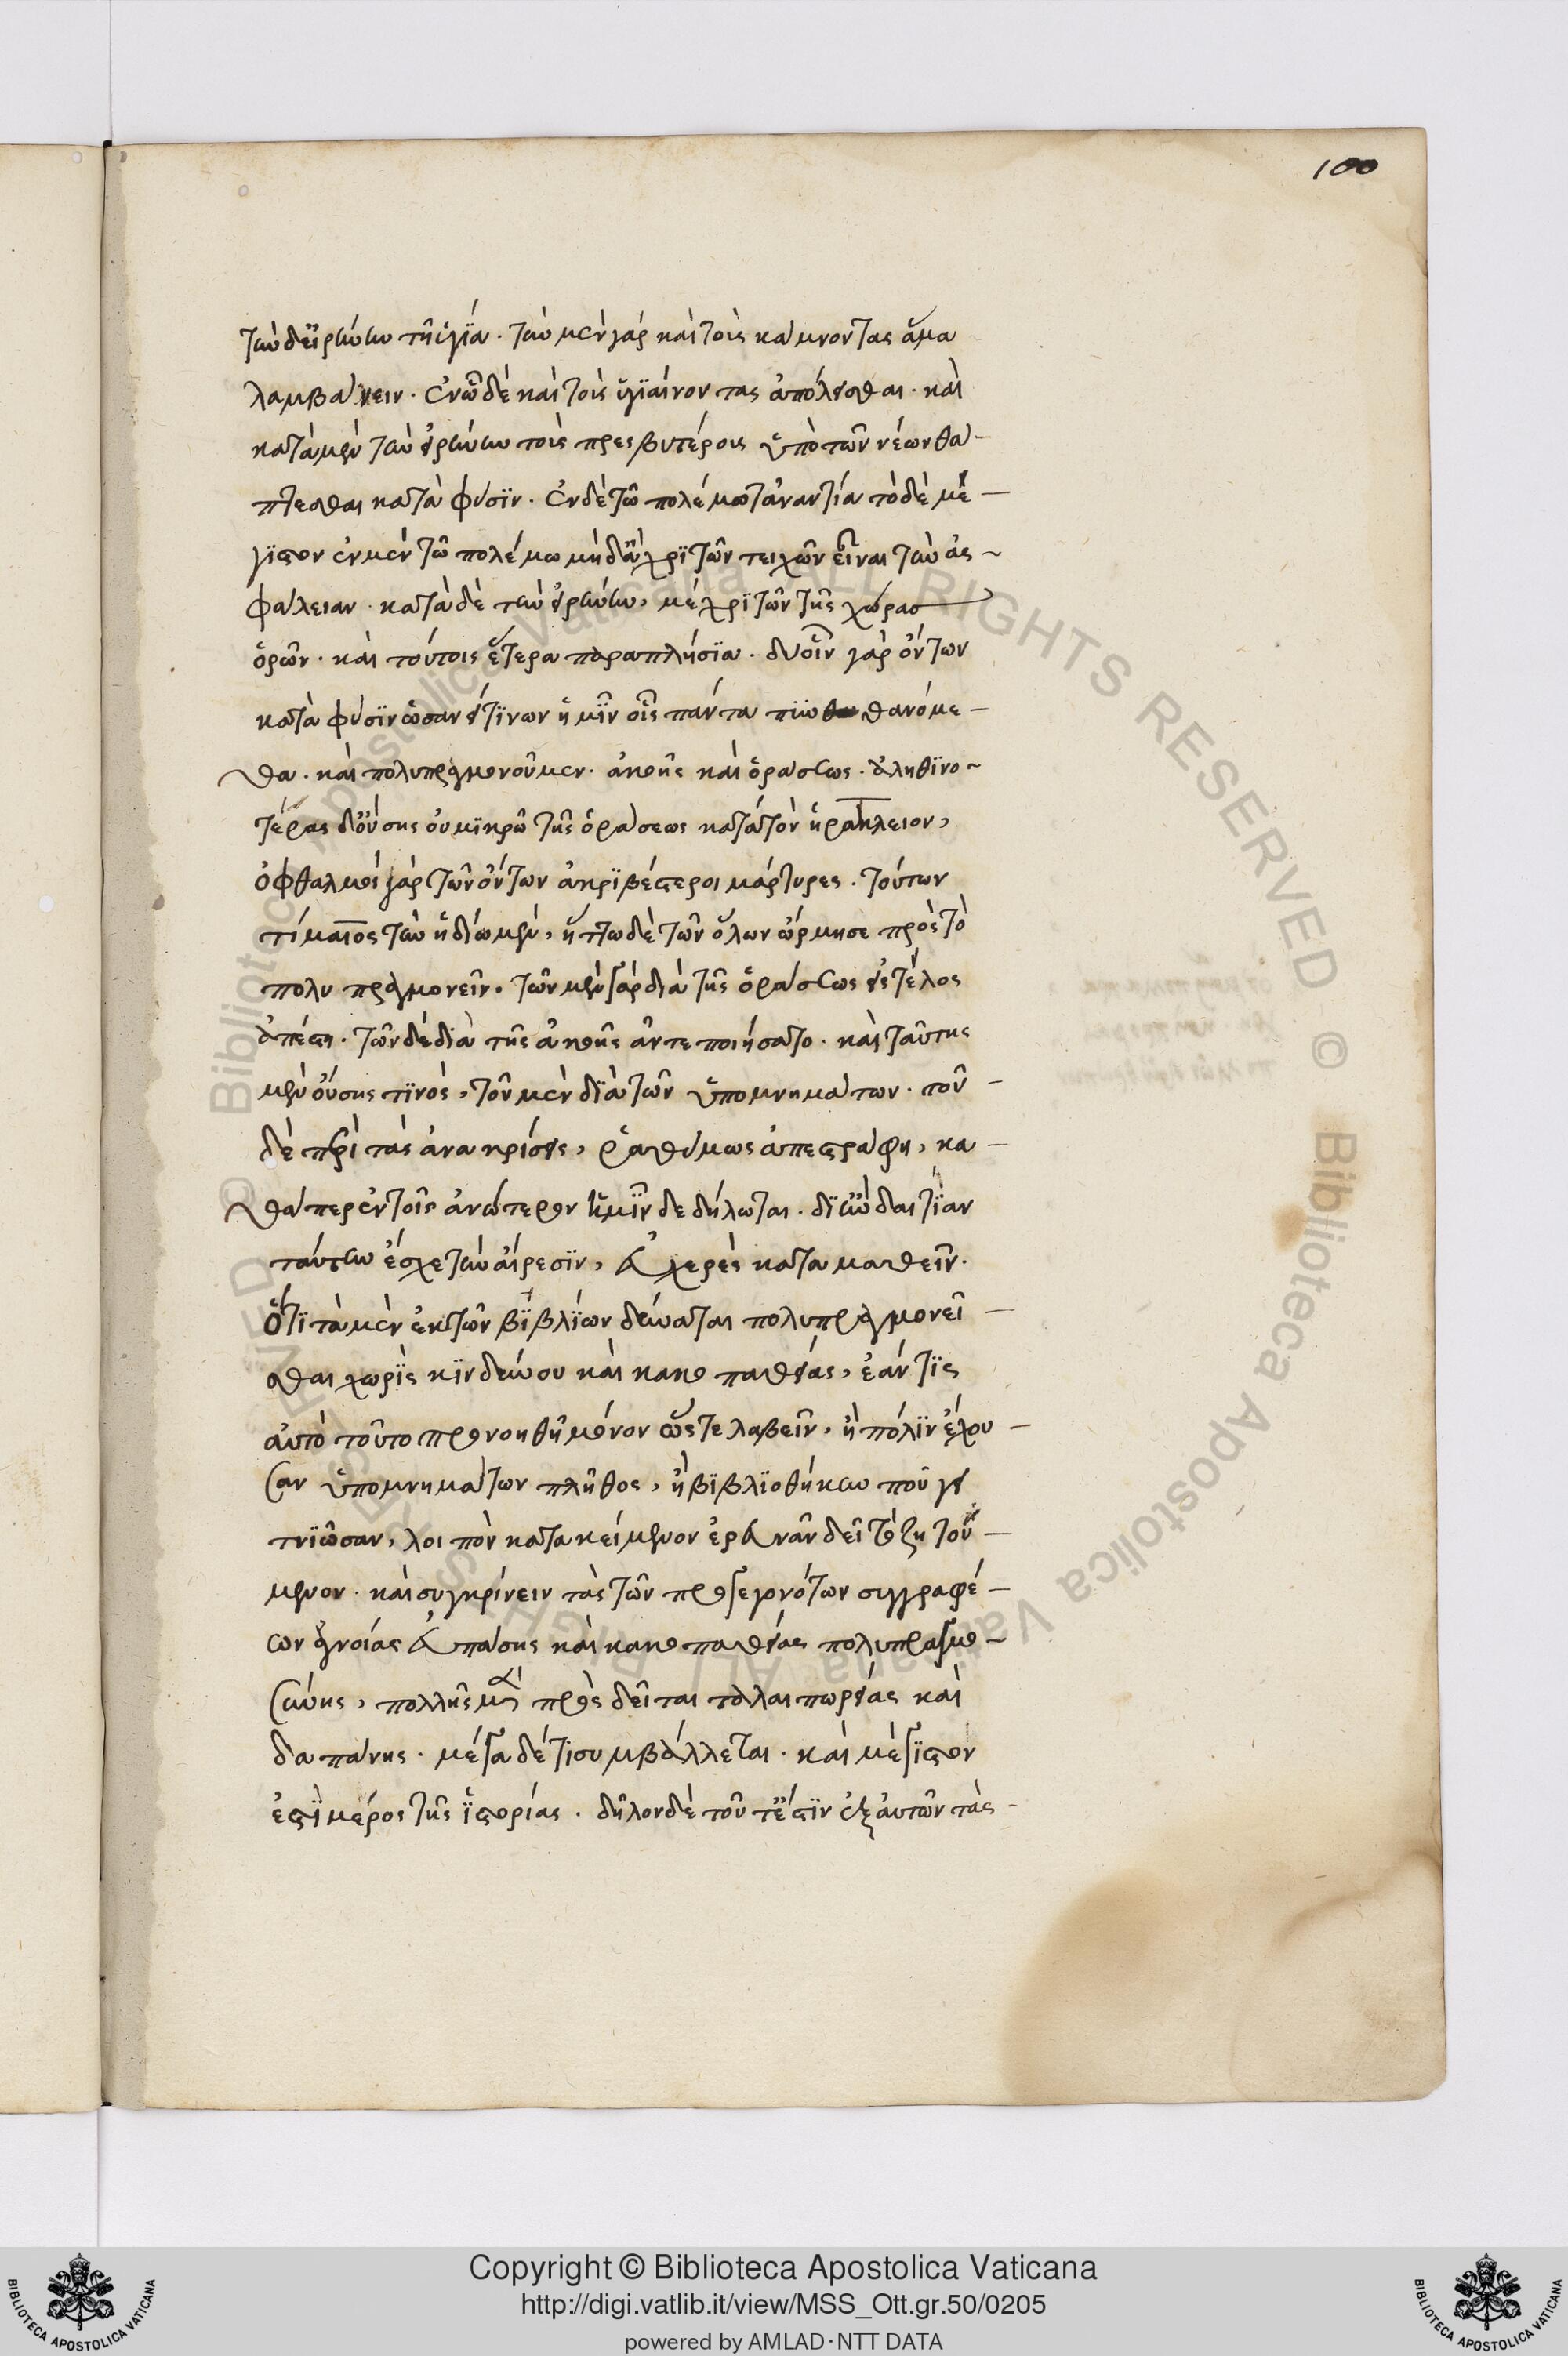 100
τὴν δ' εἰρήνην τῇ ὑγιεία. τὴν μὲν γὰρ καὶ τοὺς κάμνοντας ἅμα
λαμβάνειν. ἐν ᾧ δὲ καὶ τοὺς ὑγιαίνοντας ἀπόλλυσθαι. καὶ
κατὰ μὲν τὴν εἰρήνην τοὺς πρεσβυτέρους ὑπὸ τῶν νέων θά-
πτεσθαι κατὰ φύσϊν. ἐν δὲ τῷ πολέμω τἀναντία τὸ δὲ μέ-
γϊστον ἐν μὲν τῷ πολέμω μηδ' ἄχρϊ τῶν τειχῶν εἶναι τὴν ἀσ-
φάλειαν. κατὰ δὲ τὴν εἰρήνην, μέχρϊ τῶν τῆς χώρας
ὅρων. καὶ τούτοις ἕτερα παραπλήσϊα. δυοῖν γὰρ ὄντων
κατὰ φύσϊν ὡσαν εἴ τϊνων ἡμῖν οἷς πάντα πυνθανόμε-
θα. καὶ πολυπραγμονοῦμεν. ἀκοῆς καὶ ὁράσεως. ἀληθϊνο-
τέρας δ' οὔσης οὐ μϊκρῷ τῆς ὁράσεως κατὰ τὸν ἡράκλειον,
ὀφθαλμοὶ γὰρ τῶν ὄντων ἀκρϊβέστεροι μάρτυρες. τούτων
τίμαιος τὴν ἡδίω μὲν, ἥττω δὲ τῶν ὅλων ὥρμησε πρὸς τὸ
πολυπραγμονεῖν. τῶν μὲν γὰρ διὰ τῆς ὁράσεως εἰς τέλος
ἀπέστη. τῶν δὲ διὰ τῆς ἀκοῆς ἀντεποιήσατο. καὶ ταύτης
μὲν οὔσης τϊνὸς, τοῦ μὲν δϊὰ τῶν ὑπομνημάτων. τοῦ
δὲ περὶ τὰς ἀνακρίσεις, ῥαθύμως ἀπεστράφη, κα-
θάπερ ἐν τοῖς ἀνώτερον ἡμῖν δεδήλωται. δϊ' ἣν δ' αἰτϊαν
ταύτην ἔσχε τὴν αἵρεσϊν, εὐχερὲς καταμαθεῖν.
ὅτϊ τὰ μὲν ἐκ τῶν βϊβλϊων δύναται πολυπραγμονεῖ-
σθαι χωρϊς κϊνδύνου καὶ κακοπαθείας, ἐάν τϊς
αὐτὸ τοῦτο προνοηθῇ μόνον ὥστε λαβεῖν, ἢ πόλϊν ἔχου-
σαν ὑπομνημάτων πλῆθος, ἢ βϊβλϊοθήκην που γει-
τνϊῶσαν, λοιπὸν κατακείμενον ἐρευνᾶν δεῖ τὸ ζητού-
μενον. καὶ συγκρίνειν τὰς τῶν προγεγονότων συγγραφέ-
ων ἀγνοίας ἄνευ πάσης καὶ κακοπαθείας πολυπραγμο-
σύνης, πολλῆς μὲν προσδεῖται ταλαιπωρείας καὶ
δαπάνης. μέγα δέ τϊ συμβάλλεται. καὶ μέγϊστον
ἐστϊ μέρος τῆς ϊστορίας. δῆλον δὲ τοῦτ' ἐστϊν ἐξ αὐτῶν τὰς
Copyright © Biblioteca Apostolica Vaticana
http://digi.vatlib.it/view/MSS_Ott.gr.50/0205
powered by AMLAD·NTT DATA
BIBLIOTECA APOSTOLICA VATICANA
BIBLIOTECA APOSTOLICA VATICANA